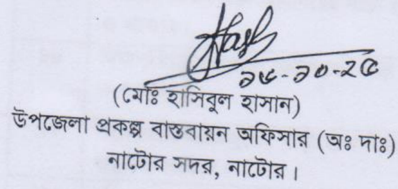 ১৫-১০-২৫
(মোঃ হাসিবুল হাসান)
উপজেলা প্রকল্প বাস্তবায়ন অফিসার (অঃ দাঃ)
নাটোর সদর, নাটোর।